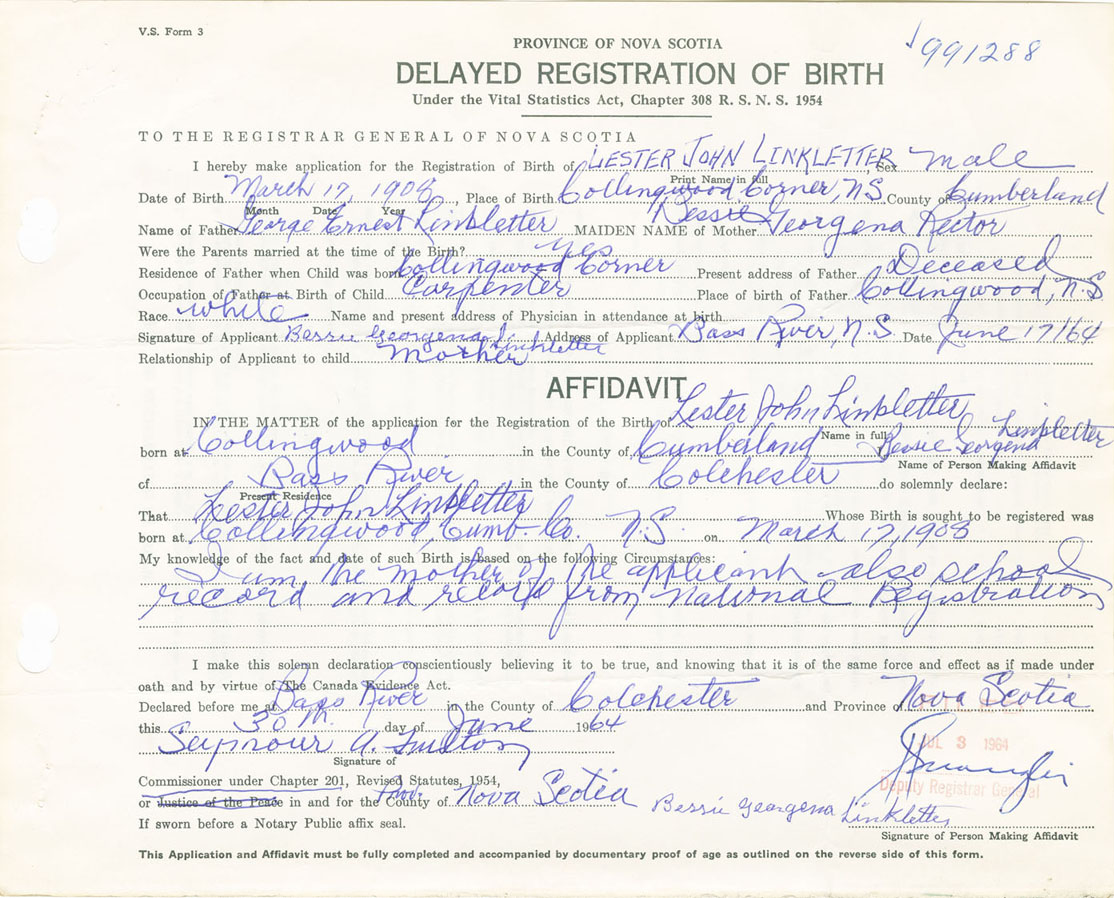 V.S. Form 3
991288
PROVINCE OF NOVA SCOTIA
DELAYED REGISTRATION OF BIRTH
Under the Vital Statistics Act, Chapter 308 R. S. N. S. 1954
TO THE REGISTRAR GENERAL OF NOVA SCOTIA
I hereby make application for the Registration of Birth of LESTER JOHN LINKLETTER Sex male
Print Name in full
Date of Birth March 17, 1908, Place of Birth Collingwood Corner, N.S. County of Cumberland
Month Date Year
Name of Father George Ernest Linkletter MAIDEN NAME of Mother Bessie Georgena Rector
Were the Parents married at the time of the Birth? Yes
Residence of Father when Child was born Collingwood Corner Present address of Father Deceased
Occupation of Father at Birth of Child Carpenter Place of birth of Father Collingwood, N.S
Race white Name and present address of Physician in attendance at birth
Signature of Applicant Bessie Georgena Linkletter Address of Applicant Bass River, N.S. Date June 17/64
Relationship of Applicant to child Mother
AFFIDAVIT
IN THE MATTER of the application for the Registration of the Birth of Lester John Linkletter
Name in full
born at Collingwood in the County of Cumberland Bessie Georgena Linkletter
Name of Person Making Affidavit
of Bass River in the County of Colchester do solemnly declare:
Present Residence
That Lester John Linkletter Whose Birth is sought to be registered was
born at Collingwood, Cumb. Co. N.S. on March 17, 1908
My knowledge of the fact and date of such Birth is based on the following Circumstances:
I am the mother of the applicant also school
record and record from National Registration
I make this solemn declaration conscientiously believing it to be true, and knowing that it is of the same force and effect as if made under
oath and by virtue of The Canada Evidence Act.
Declared before me at Bass River in the County of Colchester and Province of Nova Scotia
this 30th. day of June 1964
Seymour A.
Signature of
JUL 3 1964
Deputy Registrar General
Commissioner under Chapter 201, Revised Statutes, 1954,
or Justice of the Peace in and for the County of Prov. Nova Scotia
Bessie Georgena Linkletter
If sworn before a Notary Public affix seal.
Signature of Person Making Affidavit
This Application and Affidavit must be fully completed and accompanied by documentary proof of age as outlined on the reverse side of this form.